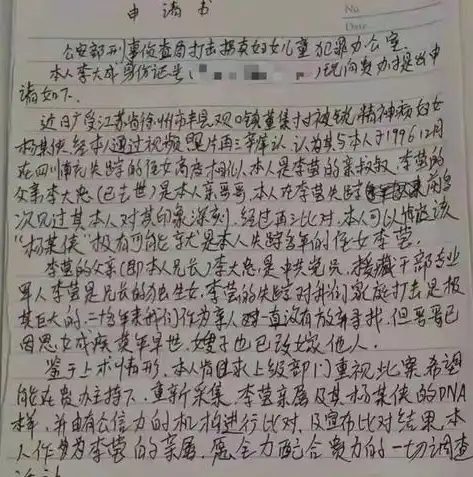 申请书
No.
Date
公安部刑事侦查局打击拐卖妇女儿童犯罪办公室
本人李大成身份证号( )现向贵办提出申
请如下.
近日广受江苏省徐州市丰县欢口镇董集村被锁精神病妇女
杨某侠经本人通过视频照片再三辨认,认为其与本人于1996年12月
在四川南充失踪的侄女高度相似.本人是李莹的亲叔叔,李莹的
父亲李大忠(已去世)是本人亲哥哥.本人在李莹失踪前多
次见过其本人对其印象深刻.经过再三比对.本人可以
"杨某侠"极有可能就是本人失踪多年的侄女李莹.
李莹的父亲(即本人兄长)李大忠,是中共党员.援藏干部专业
军人李莹是兄长的独生女.李莹的失踪对我们家庭打击是极
其巨大的.二十多年来我们作为亲人一直没有放弃寻找,但哥哥已
因思女成疾英年早世.嫂子也已改嫁他人.
鉴于上术情形.本人肯请求上级部门重视此案.希望
能在贵办主持下.重新采集.李莹亲属及其杨某侠的DNA
样,并由有公信力的机构进行比对.及宣布比对结果.本
人作为李莹的亲属.愿全力配合贵力的一切调查